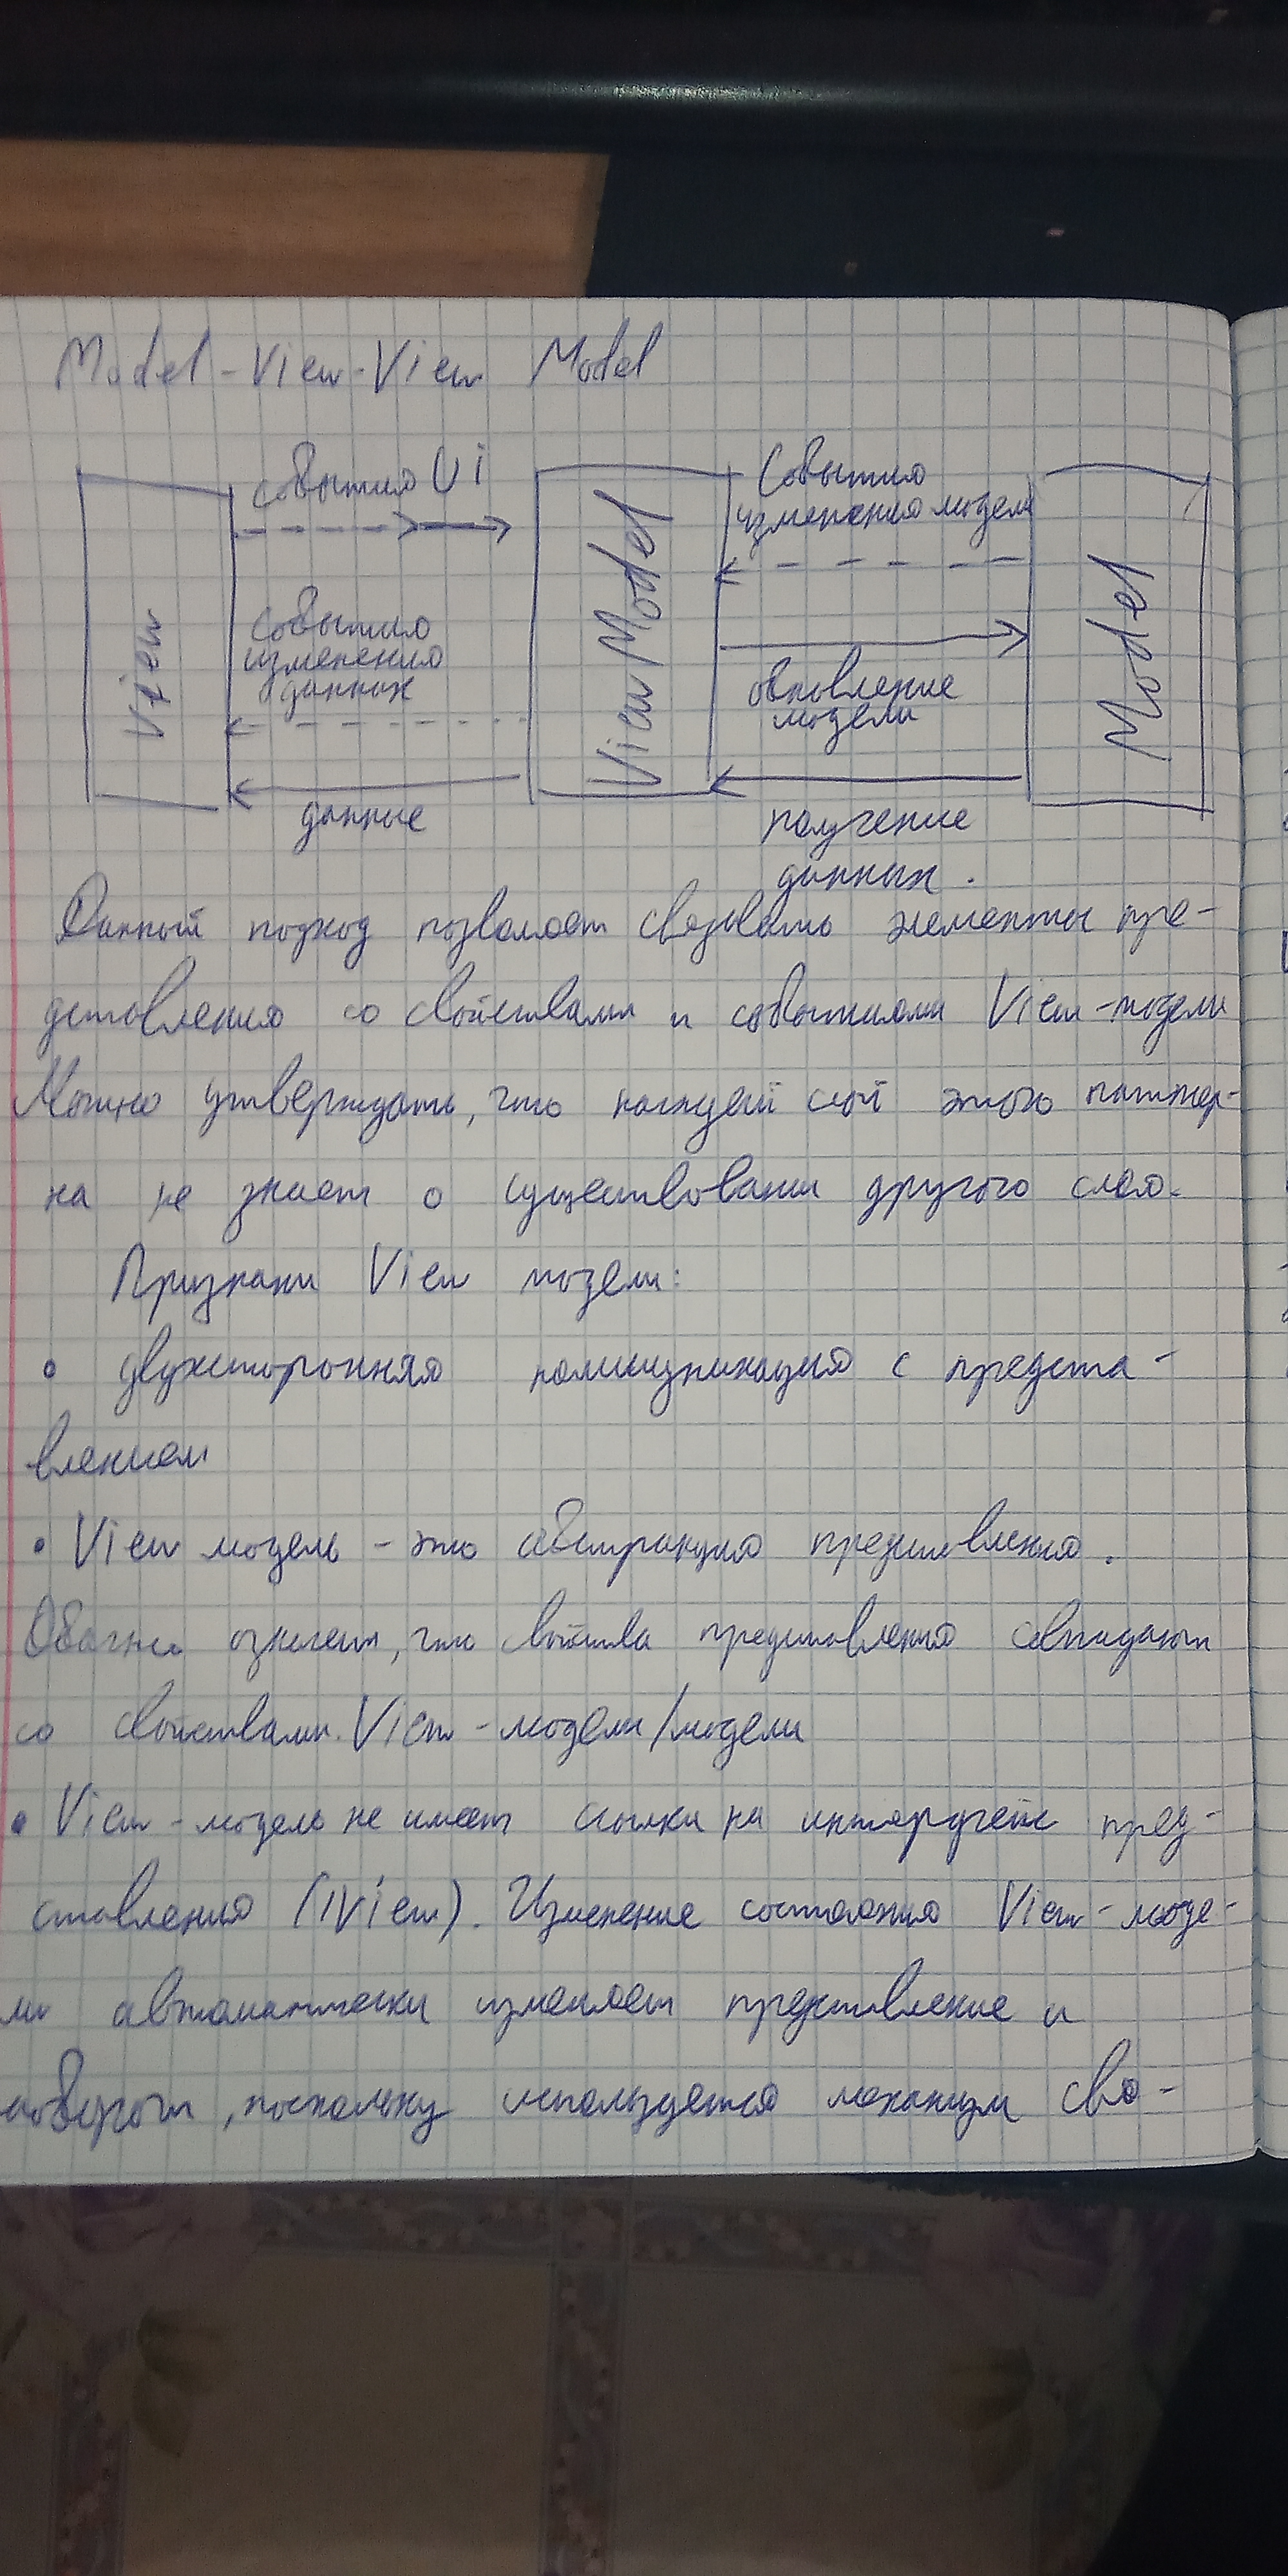 Model-View-View Model
события Ui
События
изменения модели
View
События
изменения
данных
View Model
обновление
модели
Model
данные
получение
данных.
Данный подход позволяет связывать элементы пре-
дставления со свойствами и событиями View-модели
Можно утверждать, что каждый слой этого паттер-
на не знает о существовании другого слоя.
Признаки View модели:
• двухсторонняя коммуникация с предста-
влением
• View модель - это абстракция представления.
Обычно означает, что свойства представления совпадают
со свойствами View-модели/модели
• View-модель не имеет ссылки на интерфейс пред-
ставления (IView). Изменение состояния View-моде-
ли автоматически изменяет представление и
наоборот, поскольку используется механизм свя-